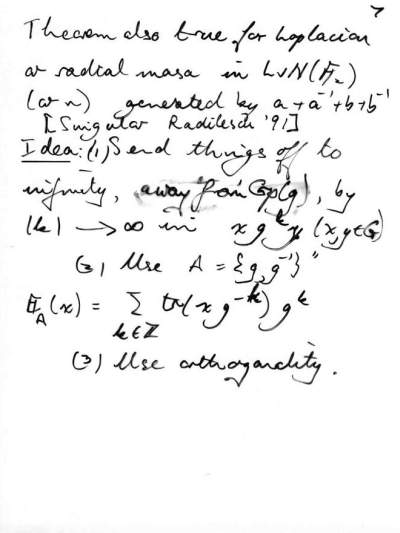 7
Theorem also true for Laplacian
or radial masa in LvN(𝔽₂)
(or n) generated by a + a⁻¹ + b + b⁻¹
[Singular Radulescu '91]
Idea: (1) Send things off to
infinity, away from Gp(g), by
|k| → ∞ in x gᵏ y (x, y ∈ G)
(2) Use A = {g, g⁻¹}"
𝔼_A(x) = Σ tr(x g⁻ᵏ) gᵏ
k∈ℤ
(3) Use orthogonality.